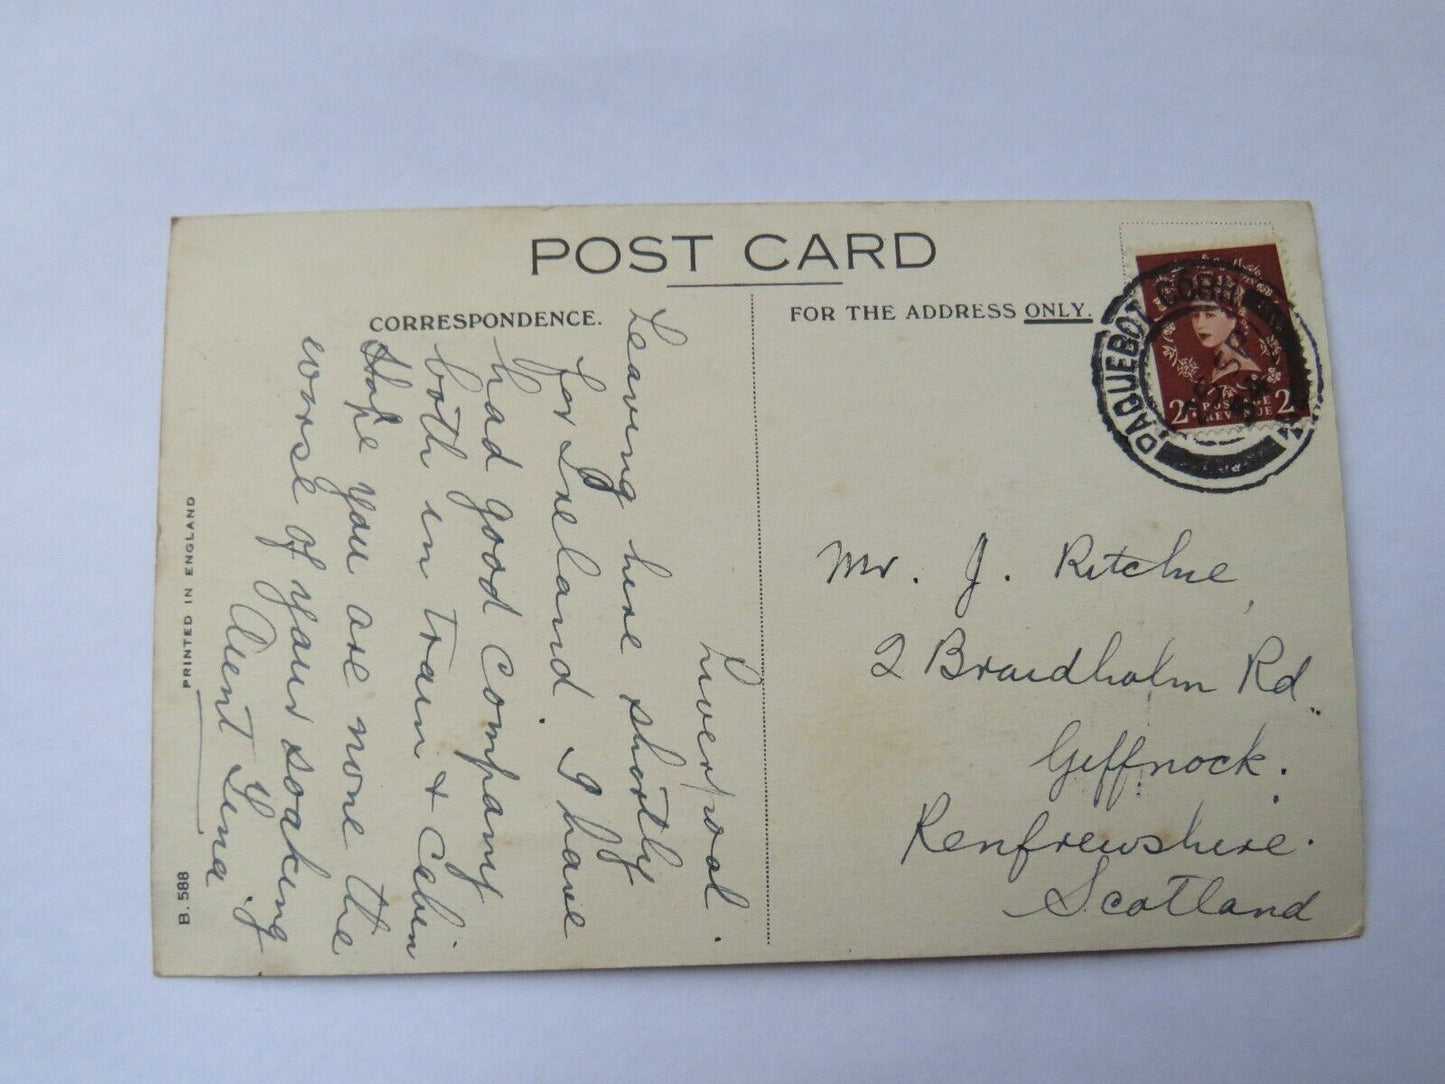 POST CARD
CORRESPONDENCE.
FOR THE ADDRESS ONLY.
Liverpool.
Leaving here shortly
for Ireland. I have
had good company
both in train & Cabin
Hope you are none the
worse of your soaking
Aunt Lena.
Mr. J. Ritchie,
2 Braidholm Rd.
Giffnock.
Renfrewshire.
Scotland
PAQUEBOT COBH
2 POSTAGE REVENUE 2
PRINTED IN ENGLAND
B. 588